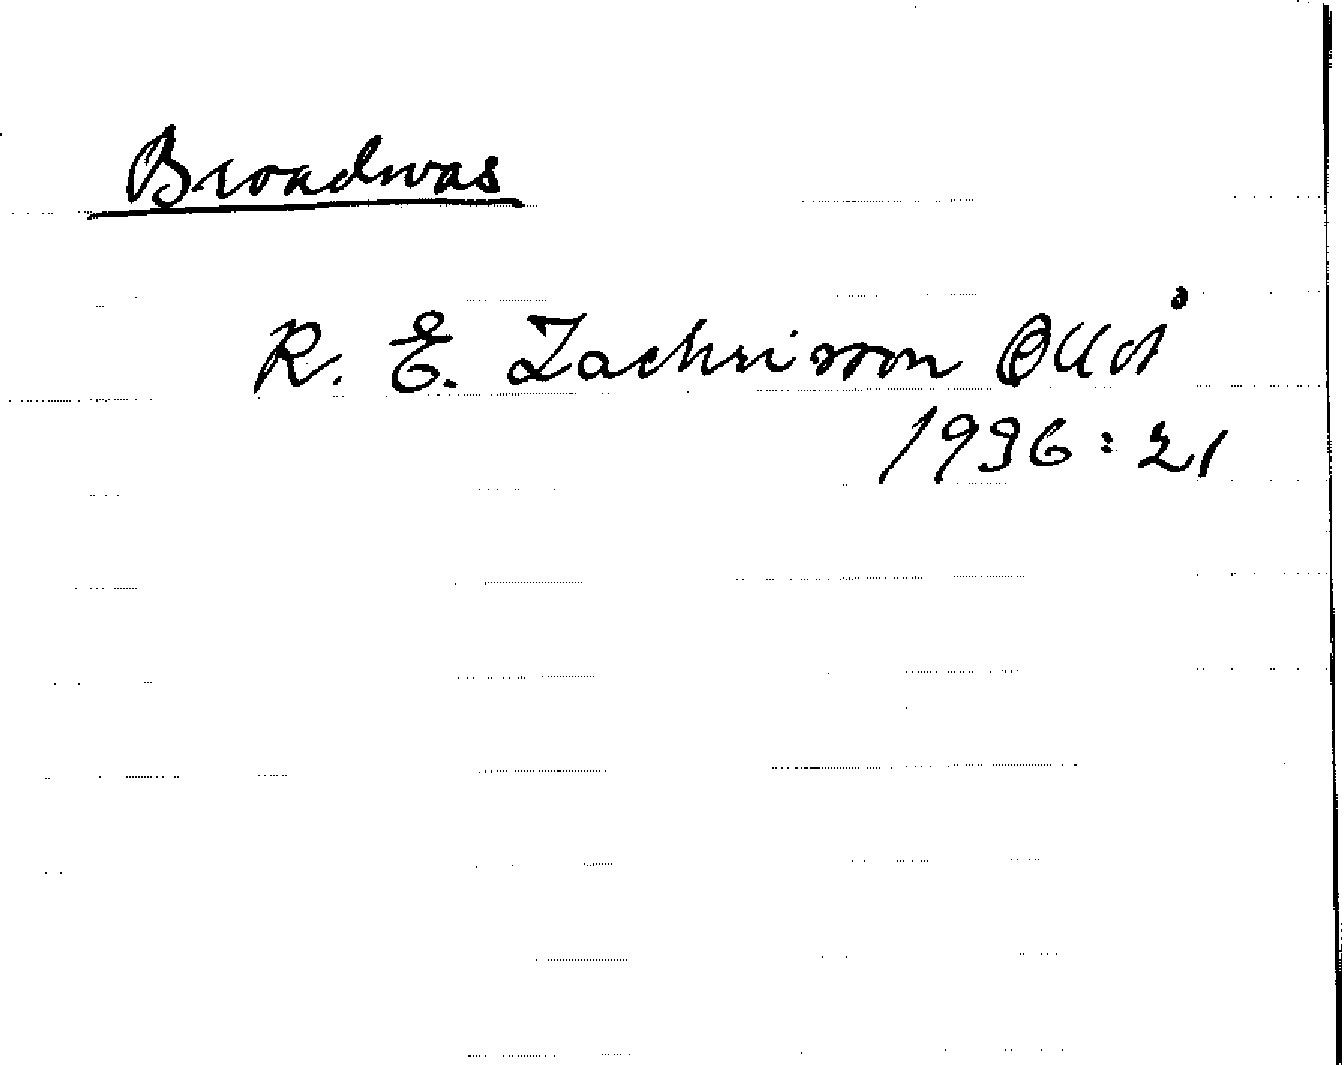 Broadwas
R. E. Zachrisson UUÅ
1936: 21